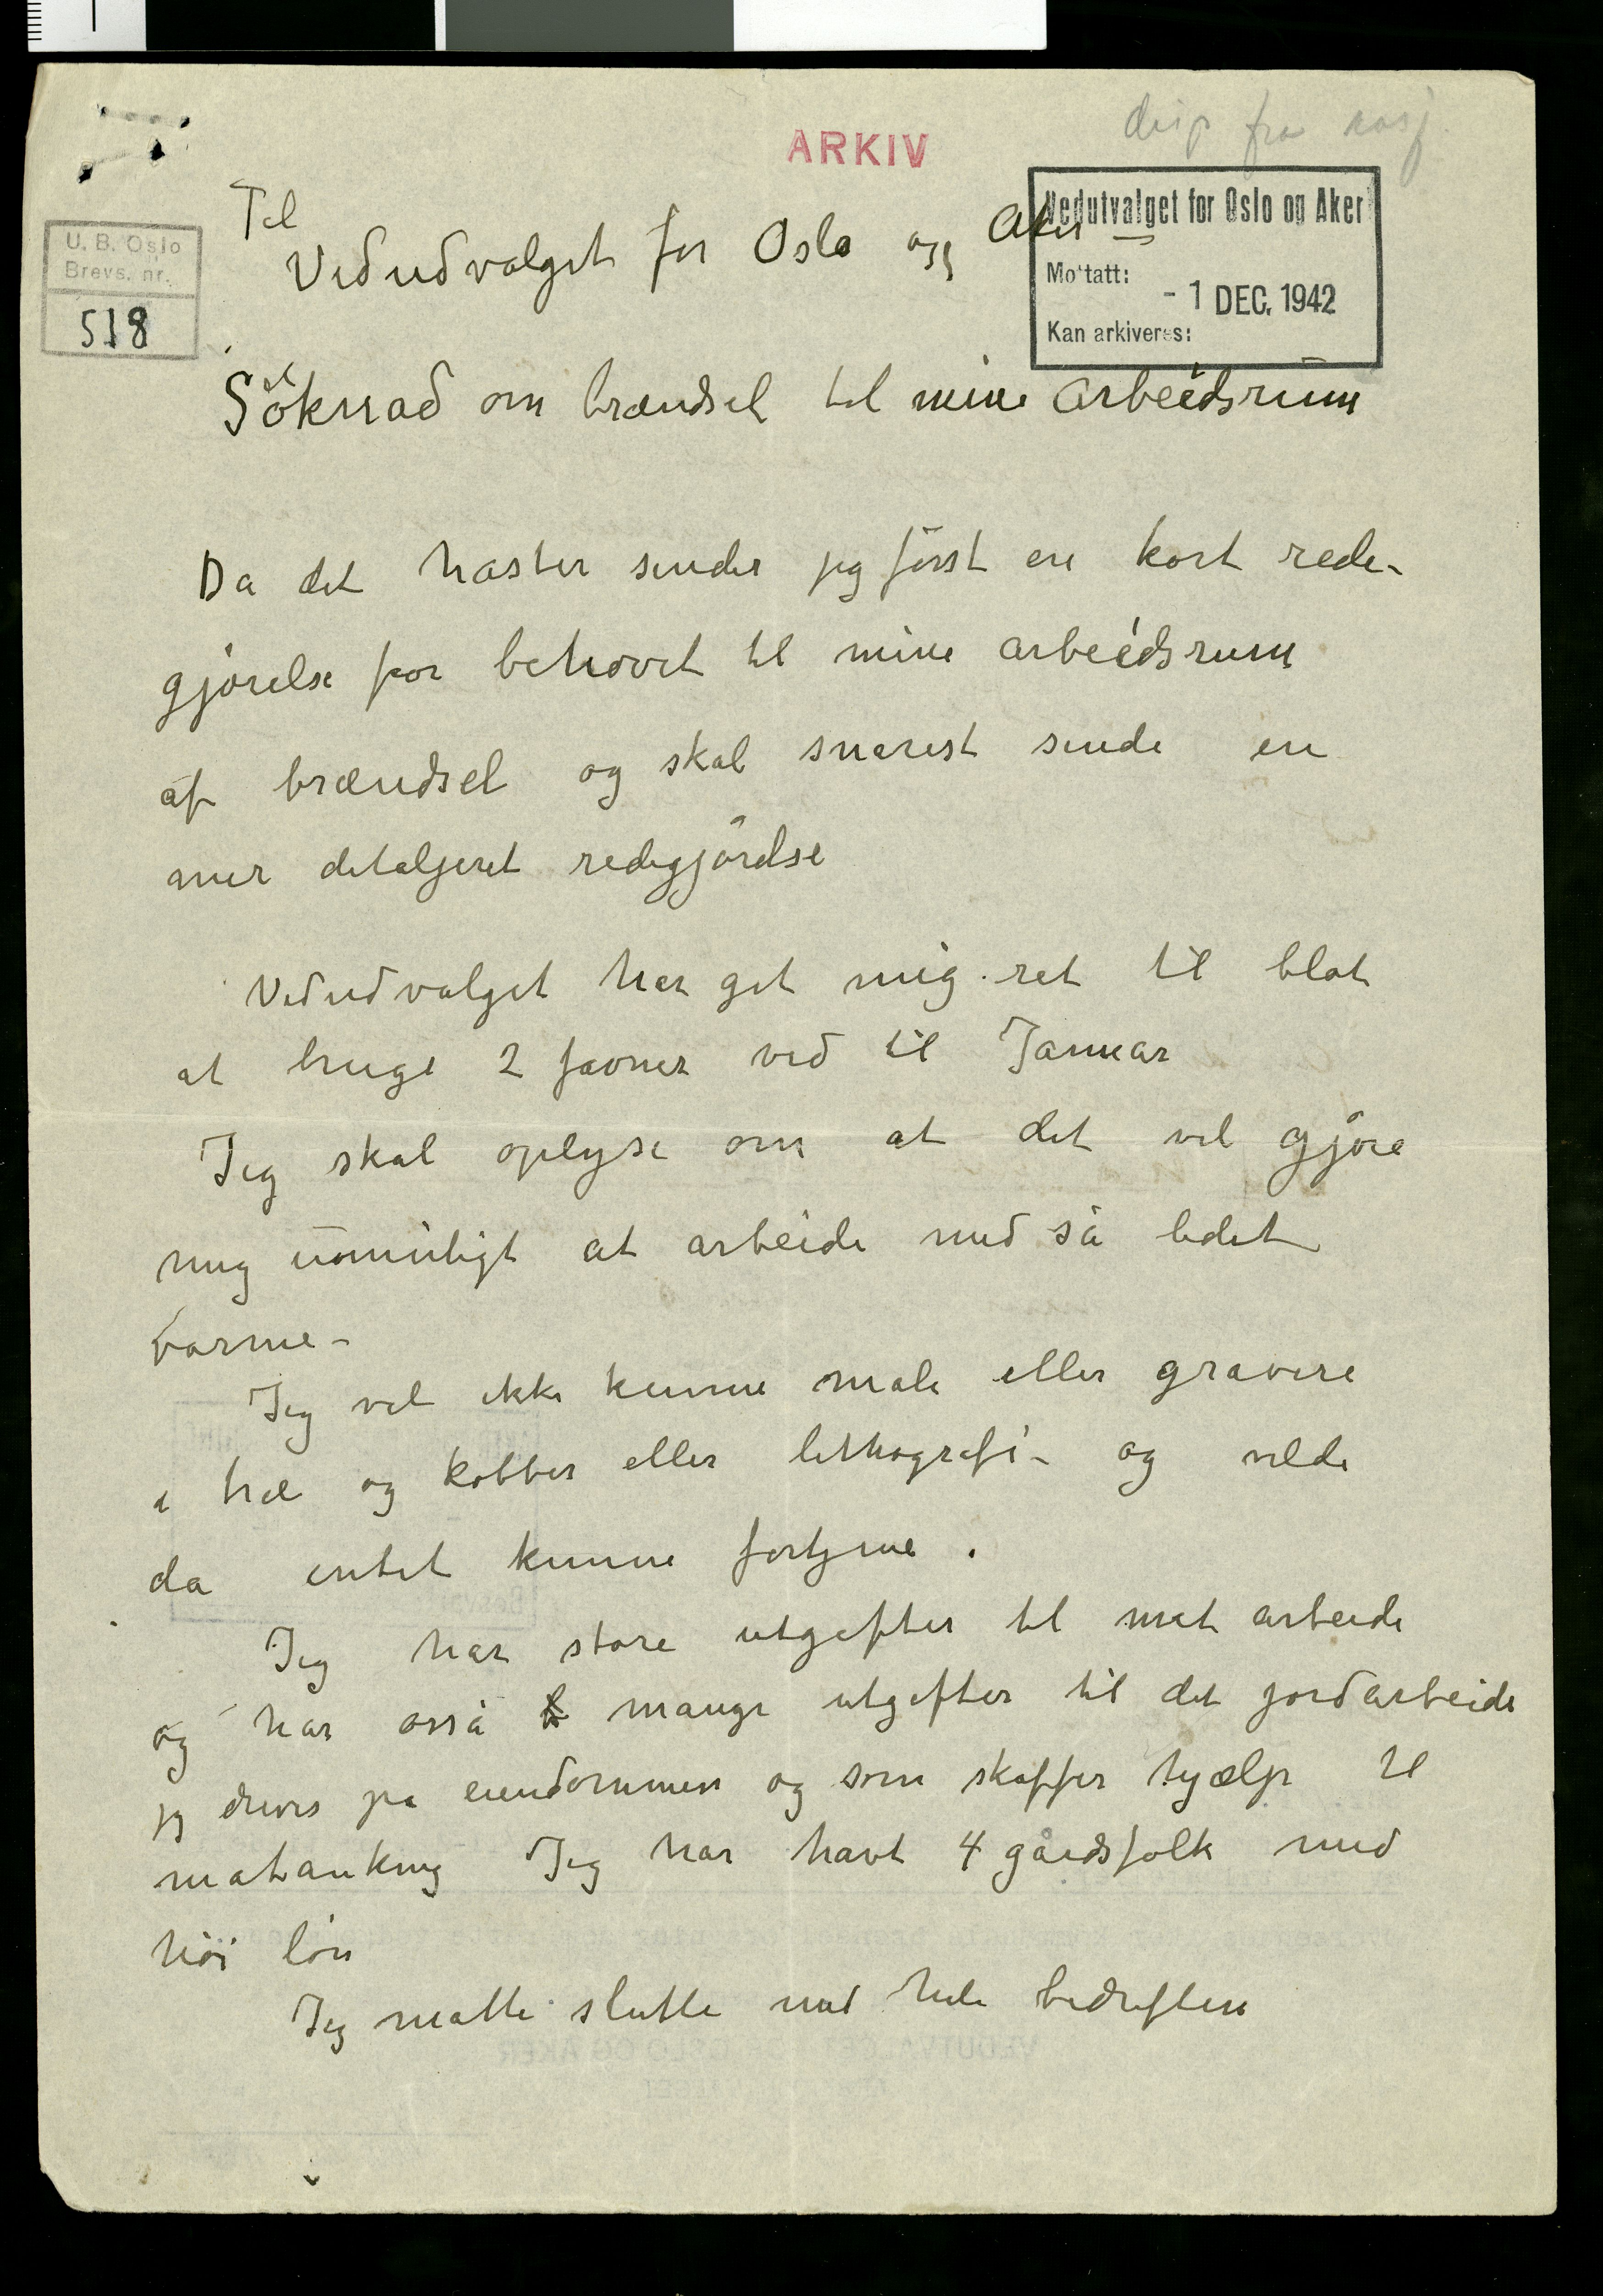 disp fra rasj.
ARKIV
Vedutvalget for Oslo og Aker
Mottatt:
- 1 DEC. 1942
Kan arkiveres:
U. B. Oslo
Brevs. nr.
518
Til
Vedudvalget for Oslo og Aker –
Söknad om brændsel til mine arbeidsrum
Da det haster sender jeg först en kort rede-
gjörelse for behovet til mine arbeidsrum
af brændsel og skal snarest sende en
mer detaljeret redegjördlse
Vedudvalget har git mig ret til blot
at bruge 2 favner ved til Januar
Jeg skal oplyse om at det vil gjöre
mig uomuligt at arbeide med så lidet
varme –
Jeg vil ikke kunne male eller gravere
i træ og kobber eller lithografi – og vilde
da intet kunne fortjene .
Jeg har store utgifter til mit arbeide
og har osså mange utgifter til det jordarbeide
jeg drivs på eiendommen og som skaffer hjælp til
matauking Jeg har havt 4 gårdsfolk med
höi lön
Jeg måtte slutte med hele bedriften